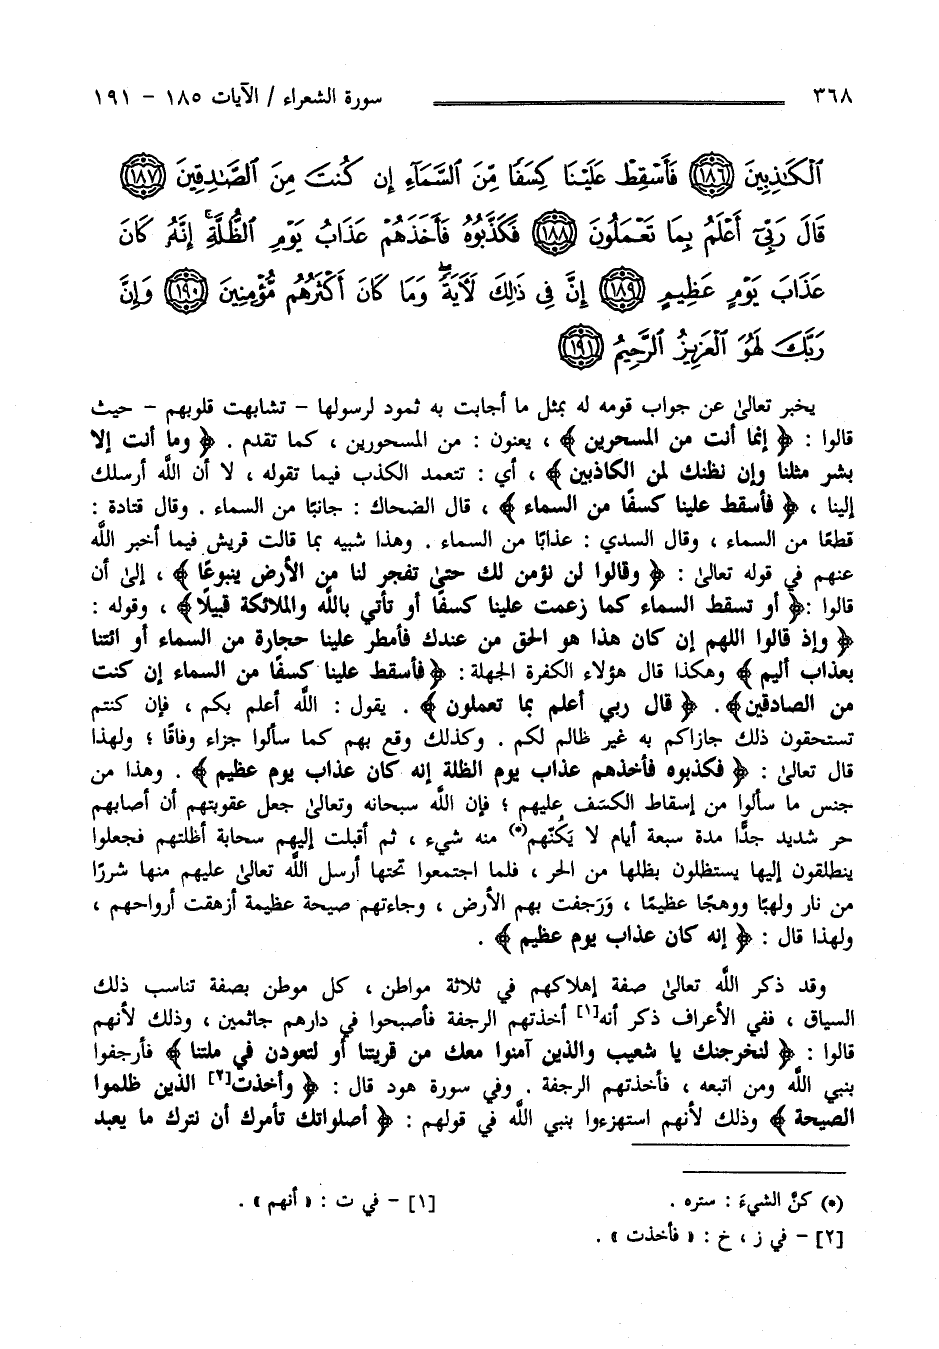 ٣٦٨ سورة الشعراء / الآيات ١٨٥ - ١٩١
ٱلْكَٰذِبِينَ ﴿١٨٦﴾ فَأَسْقِطْ عَلَيْنَا كِسَفًا مِّنَ ٱلسَّمَآءِ إِن كُنتَ مِنَ ٱلصَّٰدِقِينَ ﴿١٨٧﴾
قَالَ رَبِّىٓ أَعْلَمُ بِمَا تَعْمَلُونَ ﴿١٨٨﴾ فَكَذَّبُوهُ فَأَخَذَهُمْ عَذَابُ يَوْمِ ٱلظُّلَّةِ ۚ إِنَّهُۥ كَانَ
عَذَابَ يَوْمٍ عَظِيمٍ ﴿١٨٩﴾ إِنَّ فِى ذَٰلِكَ لَءَايَةً ۖ وَمَا كَانَ أَكْثَرُهُم مُّؤْمِنِينَ ﴿١٩٠﴾ وَإِنَّ
رَبَّكَ لَهُوَ ٱلْعَزِيزُ ٱلرَّحِيمُ ﴿١٩١﴾
يخبر تعالىٰ عن جواب قومه له بمثل ما أجابت به ثمود لرسولها - تشابهت قلوبهم - حيث
قالوا : ﴿ إنما أنت من المسحرين ﴾ ، يعنون : من المسحورين ، كما تقدم . ﴿ وما أنت إلا
بشر مثلنا وإن نظنك لمن الكاذبين ﴾ ، أي : تتعمد الكذب فيما تقوله ، لا أن الله أرسلك
إلينا ، ﴿ فأسقط علينا كسفًا من السماء ﴾ ، قال الضحاك : جانبًا من السماء . وقال قتادة :
قطعًا من السماء ، وقال السدي : عذابًا من السماء . وهذا شبيه بما قالت قريش فيما أخبر الله
عنهم في قوله تعالىٰ : ﴿ وقالوا لن نؤمن لك حتىٰ تفجر لنا من الأرض ينبوعًا ﴾ ، إلىٰ أن
قالوا :﴿ أو تسقط السماء كما زعمت علينا كسفًا أو تأتي بالله والملائكة قبيلًا ﴾ ، وقوله :
﴿ وإذ قالوا اللهم إن كان هذا هو الحق من عندك فأمطر علينا حجارة من السماء أو ائتنا
بعذاب أليم ﴾ وهكذا قال هؤلاء الكفرة الجهلة : ﴿فأسقط علينا كسفًا من السماء إن كنت
من الصادقين﴾. ﴿ قال ربي أعلم بما تعملون ﴾ . يقول : الله أعلم بكم ، فإن كنتم
تستحقون ذلك جازاكم به غير ظالم لكم . وكذلك وقع بهم كما سألوا جزاء وفاقًا ؛ ولهذا
قال تعالىٰ : ﴿ فكذبوه فأخذهم عذاب يوم الظلة إنه كان عذاب يوم عظيم ﴾ . وهذا من
جنس ما سألوا من إسقاط الكسَف عليهم ؛ فإن الله سبحانه وتعالىٰ جعل عقوبتهم أن أصابهم
حر شديد جدًّا مدة سبعة أيام لا يَكُنّهم(*) منه شيء ، ثم أقبلت إليهم سحابة أظلتهم فجعلوا
ينطلقون إليها يستظلون بظلها من الحر ، فلما اجتمعوا تحتها أرسل الله تعالىٰ عليهم منها شررًا
من نار ولهبًا ووهجًا عظيمًا ، وَرَجفت بهم الأرض ، وجاءتهم صيحة عظيمة أزهقت أرواحهم ،
ولهذا قال : ﴿ إنه كان عذاب يوم عظيم ﴾ .
وقد ذكر الله تعالىٰ صفة إهلاكهم في ثلاثة مواطن ، كل موطن بصفة تناسب ذلك
السياق ، ففي الأعراف ذكر أنه[١] أخذتهم الرجفة فأصبحوا في دارهم جاثمين ، وذلك لأنهم
قالوا : ﴿ لنخرجنك يا شعيب والذين آمنوا معك من قريتنا أو لتعودن في ملتنا ﴾ فأرجفوا
بنبي الله ومن اتبعه ، فأخذتهم الرجفة . وفي سورة هود قال : ﴿ وأخذت[٢] الذين ظلموا
الصيحة ﴾ وذلك لأنهم استهزءوا بنبي الله في قولهم : ﴿ أصلواتك تأمرك أن نترك ما يعبد
(*) كنَّ الشيءَ : ستره . [١] - في ت : « أنهم » .
[٢] - في ز ، خ : « فأخذت » .